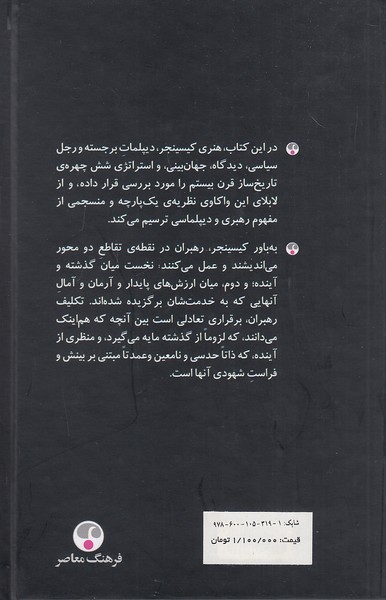 در این کتاب، هنری کیسینجر، دیپلماتِ برجسته و رجل
سیاسی، دیدگاه، جهان‌بینی، و استراتژی شش چهره‌ی
تاریخ‌ساز قرن بیستم را مورد بررسی قرار داده، و از
لابلای این واکاوی نظریه‌ی یک‌پارچه و منسجمی از
مفهوم رهبری و دیپلماسی ترسیم می‌کند.
به‌باور کیسینجر، رهبران در نقطه‌ی تقاطع دو محور
می‌اندیشند و عمل می‌کنند: نخست میان گذشته و
آینده؛ و دوم، میان ارزش‌های پایدار و آرمان و آمالِ
آنهایی که به خدمت‌شان برگزیده شده‌اند. تکلیف
رهبران، برقراری تعادلی است بین آنچه که هم‌اینک
می‌دانند، که لزوماً از گذشته مایه می‌گیرد، و منظری از
آینده، که ذاتاً حدسی و نامعین وعمدتاً مبتنی بر بینش و
فراستِ شهودی آنها است.
شابک: ۱-۲۱۹-۱۰۵-۶۰۰-۹۷۸
قیمت: ۱/۱۰۰/۰۰۰ تومان
فرهنگ معاصر